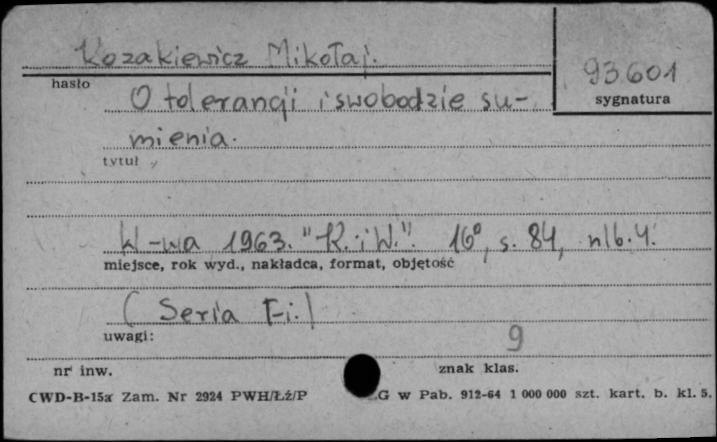 Kozakiewicz Mikołaj.
hasło
93601
sygnatura
O tolerancji i swobodzie su-
mienia.
tytuł
W-wa 1963. "K. i W." 16°, s. 84, nlb. 4.
miejsce, rok wyd., nakładca, format, objętość
(Seria F-i.)
uwagi:
9
nr inw.
znak klas.
CWD-B-15a Zam. Nr 2924 PWH/Łź/P
G w Pab. 912-64 1 000 000 szt. kart. b. kl. 5.